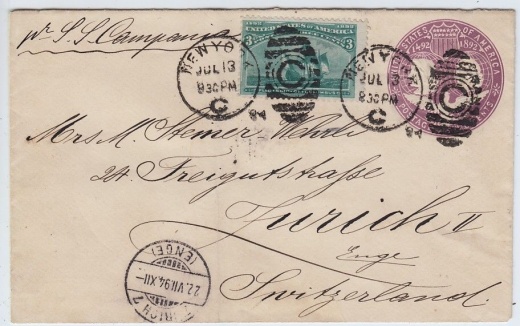 pr S.S. Campania
1492 1892
UNITED STATES OF AMERICA
3 3
NEW YO
JUL 13
830PM
C
94
NEW YO
JUL
830PM
C
94
UNITED STATES OF AMERICA
1492 1892
Mrs M. Steiner Wehrli
24. Freigutstrasse
Zurich II
Enge
Switzerland
(ENGE)
22.VII.94.XII-
ZÜRICH 7